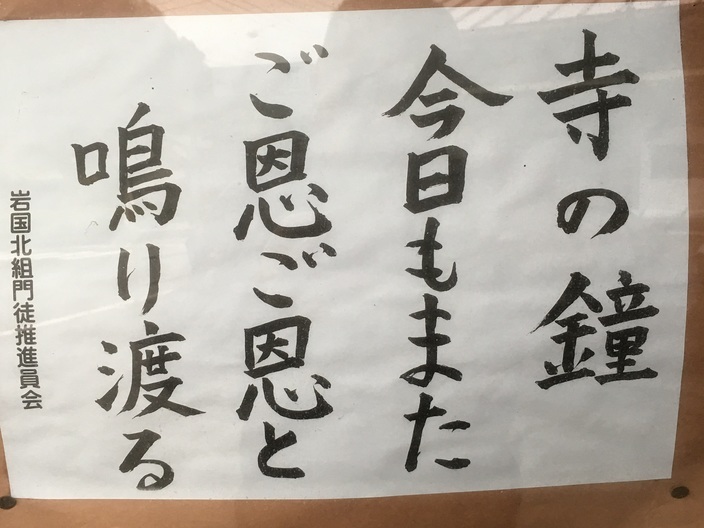 寺の鐘
今日もまた
ご恩ご恩と
鳴り渡る
岩国北組門徒推進員会